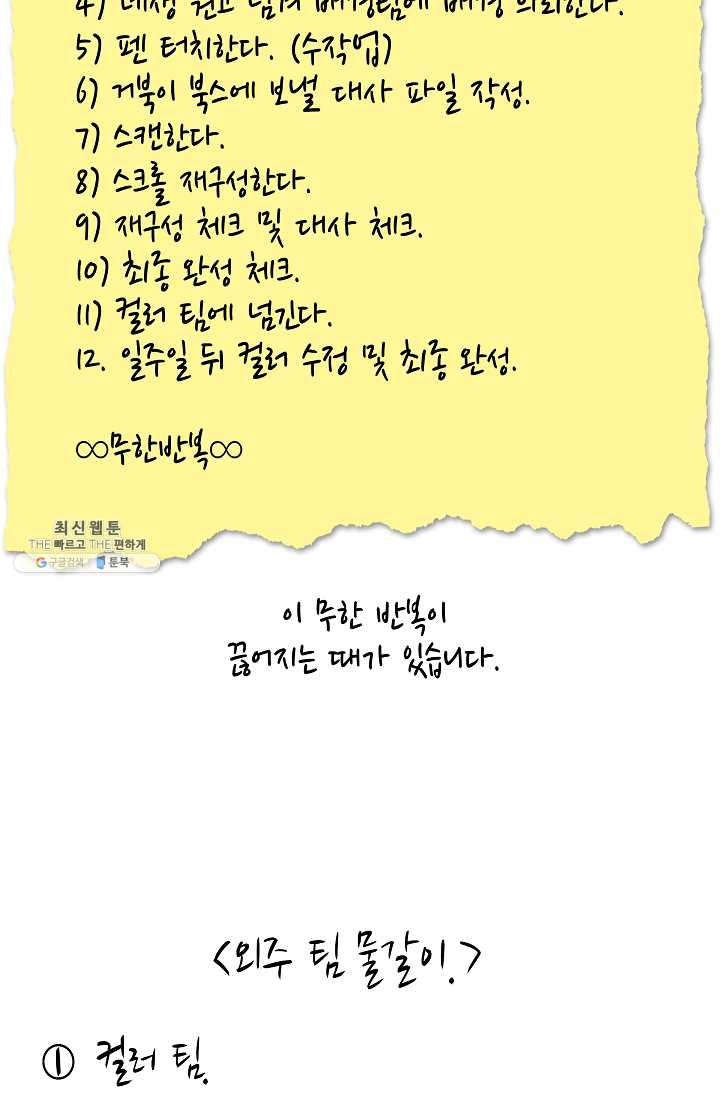 4) 데생 원고 넘겨 배경팀에 배경 의뢰한다.
5) 펜 터치한다. (수작업)
6) 거북이 북스에 보낼 대사 파일 작성.
7) 스캔한다.
8) 스크롤 재구성한다.
9) 재구성 체크 및 대사 체크.
10) 최종 완성 체크.
11) 컬러 팀에 넘긴다.
12. 일주일 뒤 컬러 수정 및 최종 완성.
∞무한반복∞
최신웹툰
THE 빠르고 THE 편하게
구글검색 툰북
이 무한 반복이
끊어지는 때가 있습니다.
<외주 팀 물갈이.>
① 컬러 팀.